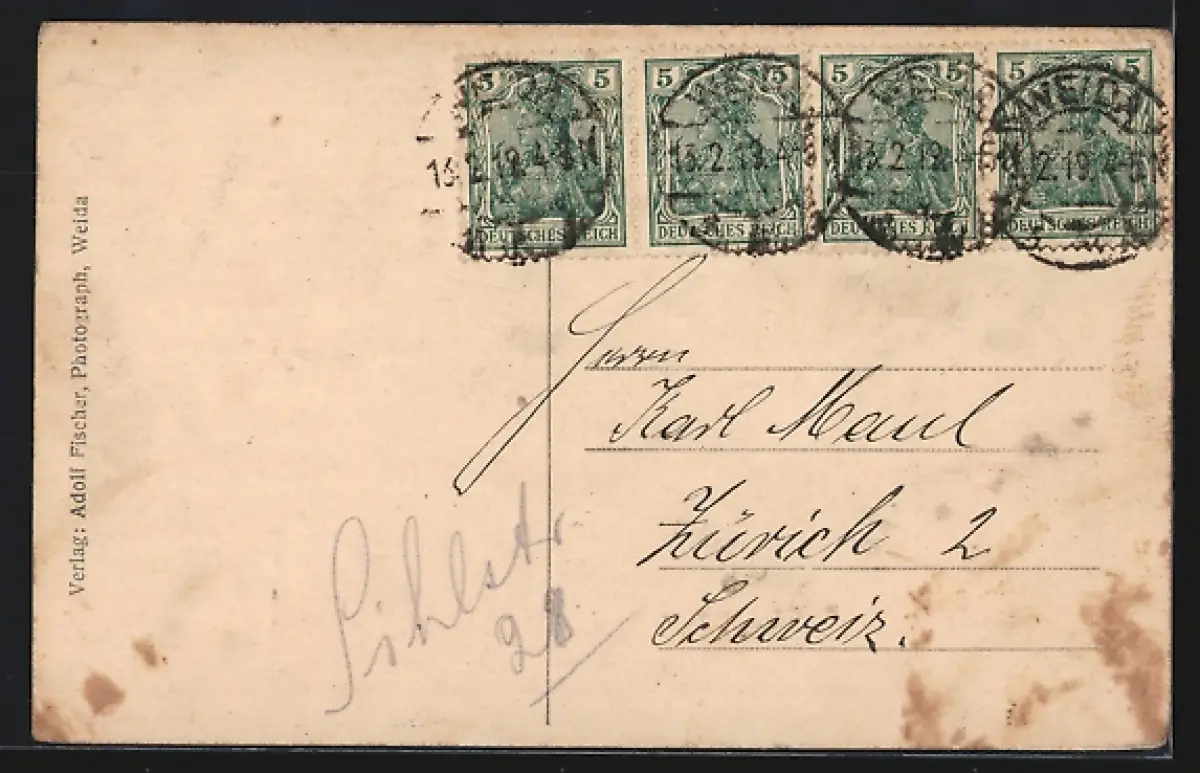 5 5 5 5 5 5 5 5
WEIDA
13.2.19.4-5N
13.2.19.4-5N
13.2.19.4-5N
2.19.4-5N
DEUTSCHES REICH DEUTSCHES REICH DEUTSCHES REICH DEUTSCHES REICH
Verlag: Adolf Fischer, Photograph, Weida
Herrn
Karl Maul
Zürich 2
Schweiz.
Sihlstr
28